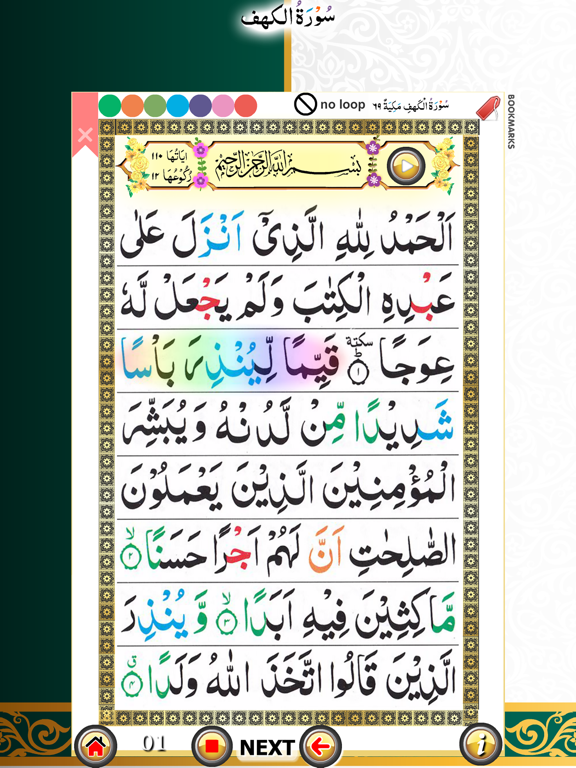 سُوْرَةُ الْكَهْف
no loop سُوْرَةُ الْكَهْفِ مَكِّيَّةٌ ٦٩
BOOKMARKS
بِسْمِ اللّٰهِ الرَّحْمٰنِ الرَّحِيْمِ
اٰيَاتُهَا ١١٠
رُكُوْعُهَا ١٢
اَلْحَمْدُ لِلّٰهِ الَّذِيْٓ اَنْزَلَ عَلٰى
عَبْدِهِ الْكِتٰبَ وَلَمْ يَجْعَلْ لَّهٗ
عِوَجًا ١ سكتة قَيِّمًا لِّيُنْذِرَ بَاْسًا
شَدِيْدًا مِّنْ لَّدُنْهُ وَيُبَشِّرَ
الْمُؤْمِنِيْنَ الَّذِيْنَ يَعْمَلُوْنَ
الصّٰلِحٰتِ اَنَّ لَهُمْ اَجْرًا حَسَنًا ٢
مَّاكِثِيْنَ فِيْهِ اَبَدًا ٣ وَّيُنْذِرَ
الَّذِيْنَ قَالُوا اتَّخَذَ اللّٰهُ وَلَدًا ٤
01 NEXT i